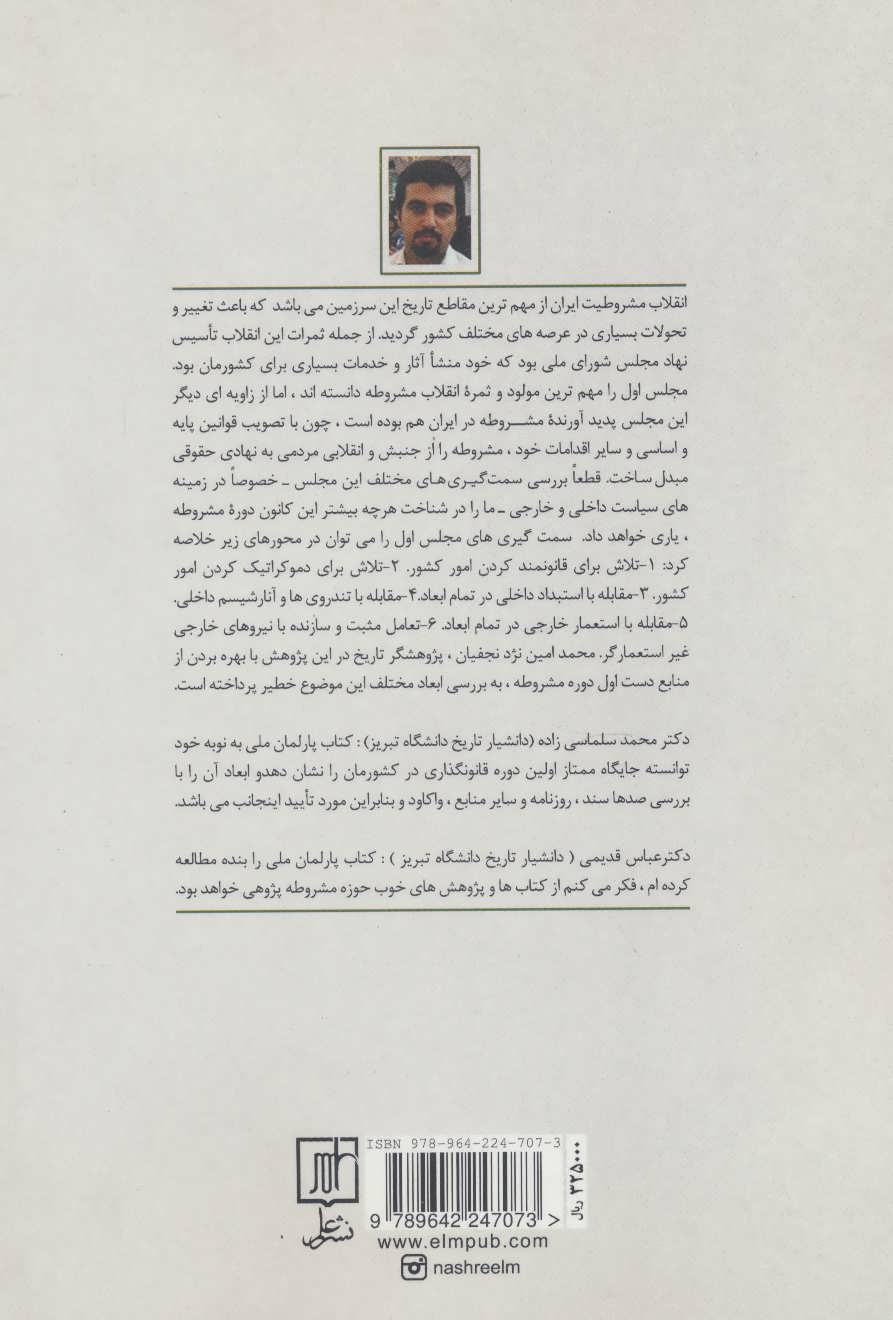 انقلاب مشروطیت ایران از مهم ترین مقاطع تاریخ این سرزمین می باشد که باعث تغییر و
تحولات بسیاری در عرصه های مختلف کشور گردید. از جمله ثمرات این انقلاب تأسیس
نهاد مجلس شورای ملی بود که خود منشأ آثار و خدمات بسیاری برای کشورمان بود.
مجلس اول را مهم ترین مولود و ثمرۀ انقلاب مشروطه دانسته اند ، اما از زاویه ای دیگر
این مجلس پدید آورندۀ مشـــروطه در ایران هم بوده است ، چون با تصویب قوانین پایه
و اساسی و سایر اقدامات خود ، مشروطه را از جنبش و انقلابی مردمی به نهادی حقوقی
مبدل ساخت. قطعاً بررسی سمت‌گیری‌های مختلف این مجلس ـ خصوصاً در زمینه
های سیاست داخلی و خارجی ـ ما را در شناخت هرچه بیشتر این کانون دورۀ مشروطه
، یاری خواهد داد. سمت گیری های مجلس اول را می توان در محورهای زیر خلاصه
کرد: ۱-تلاش برای قانونمند کردن امور کشور. ۲-تلاش برای دموکراتیک کردن امور
کشور. ۳-مقابله با استبداد داخلی در تمام ابعاد.۴-مقابله با تندروی ها و آنارشیسم داخلی.
۵-مقابله با استعمار خارجی در تمام ابعاد. ۶-تعامل مثبت و سازنده با نیروهای خارجی
غیر استعمارگر. محمد امین نژد نجفیان ، پژوهشگر تاریخ در این پژوهش با بهره بردن از
منابع دست اول دوره مشروطه ، به بررسی ابعاد مختلف این موضوع خطیر پرداخته است.
دکتر محمد سلماسی زاده (دانشیار تاریخ دانشگاه تبریز) : کتاب پارلمان ملی به نوبه خود
توانسته جایگاه ممتاز اولین دوره قانونگذاری در کشورمان را نشان دهدو ابعاد آن را با
بررسی صدها سند ، روزنامه و سایر منابع ، واکاود و بنابراین مورد تأیید اینجانب می باشد.
دکترعباس قدیمی ( دانشیار تاریخ دانشگاه تبریز ) : کتاب پارلمان ملی را بنده مطالعه
کرده ام ، فکر می کنم از کتاب ها و پژوهش های خوب حوزه مشروطه پژوهی خواهد بود.
ISBN 978-964-224-707-3
9 789642 247073 >
۳۲۵۰۰۰ ریال
نشر علم
www.elmpub.com
nashreelm